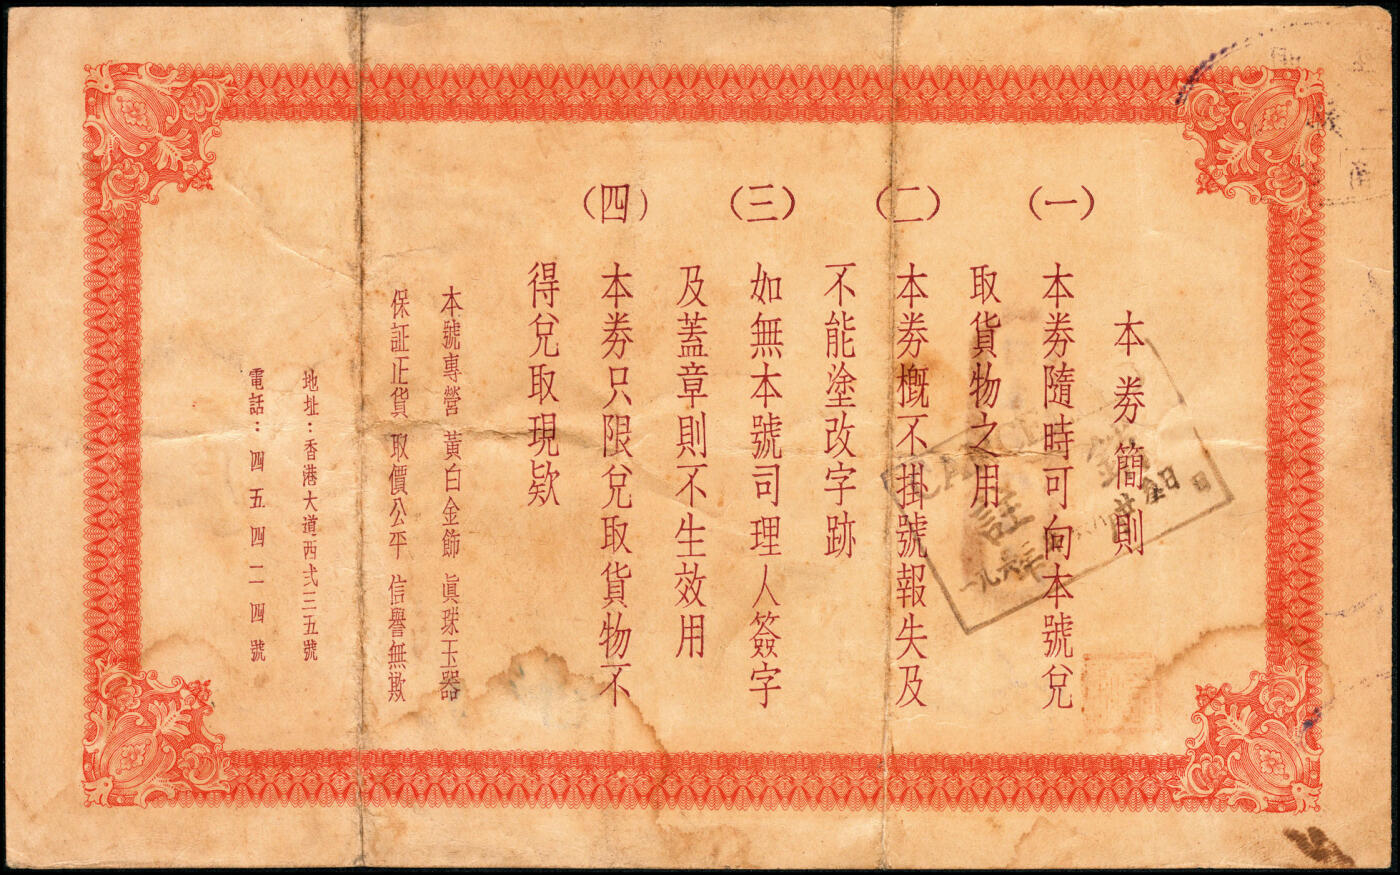 本券簡則
(一) 本券隨時可向本號兌
取貨物之用
(二) 本券概不掛號報失及
不能塗改字跡
(三) 如無本號司理人簽字
及蓋章則不生效用
(四) 本券只限兌取貨物不
得兌取現欵
本號專營 黃白金飾 眞珠玉器
保証正貨 取價公平 信譽無欺
地址：香港大道西弍三五號
電話：四五四二四號
註銷